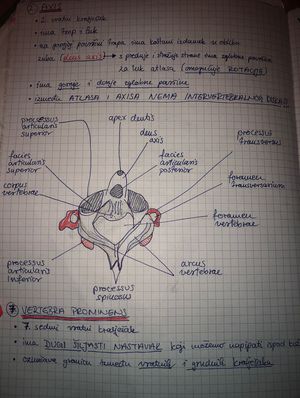 ② AXIS
• 2 vratni kralježak
• ima trup i luk
• na gornjoj površini trupa ima koštani izdanak u obliku
zuba (deus axis) → s prednje i stražnje strane ima zglobne površine
za luk atlasa (omogućuje ROTACIJU)
• ima gornje i donje zglobne površine
• između ATLASA i AXISA NEMA INTERVERTEBRALNOG DISKA!!
processus articularis superior
apex dentis
deus axis
processus transversus
facies articularis superior
facies articularis posterior
foramen transversarium
corpus vertebrae
foramen vertebrae
processus articularis inferior
arcus vertebrae
processus spinosus
⑦ VERTEBRA PROMINENS
• 7. sedmi vratni kralježak
• ima DUGI ŠILJASTI NASTAVAK koji možemo napipati ispod
• označava granicu između vratnih i grudnih kralježaka